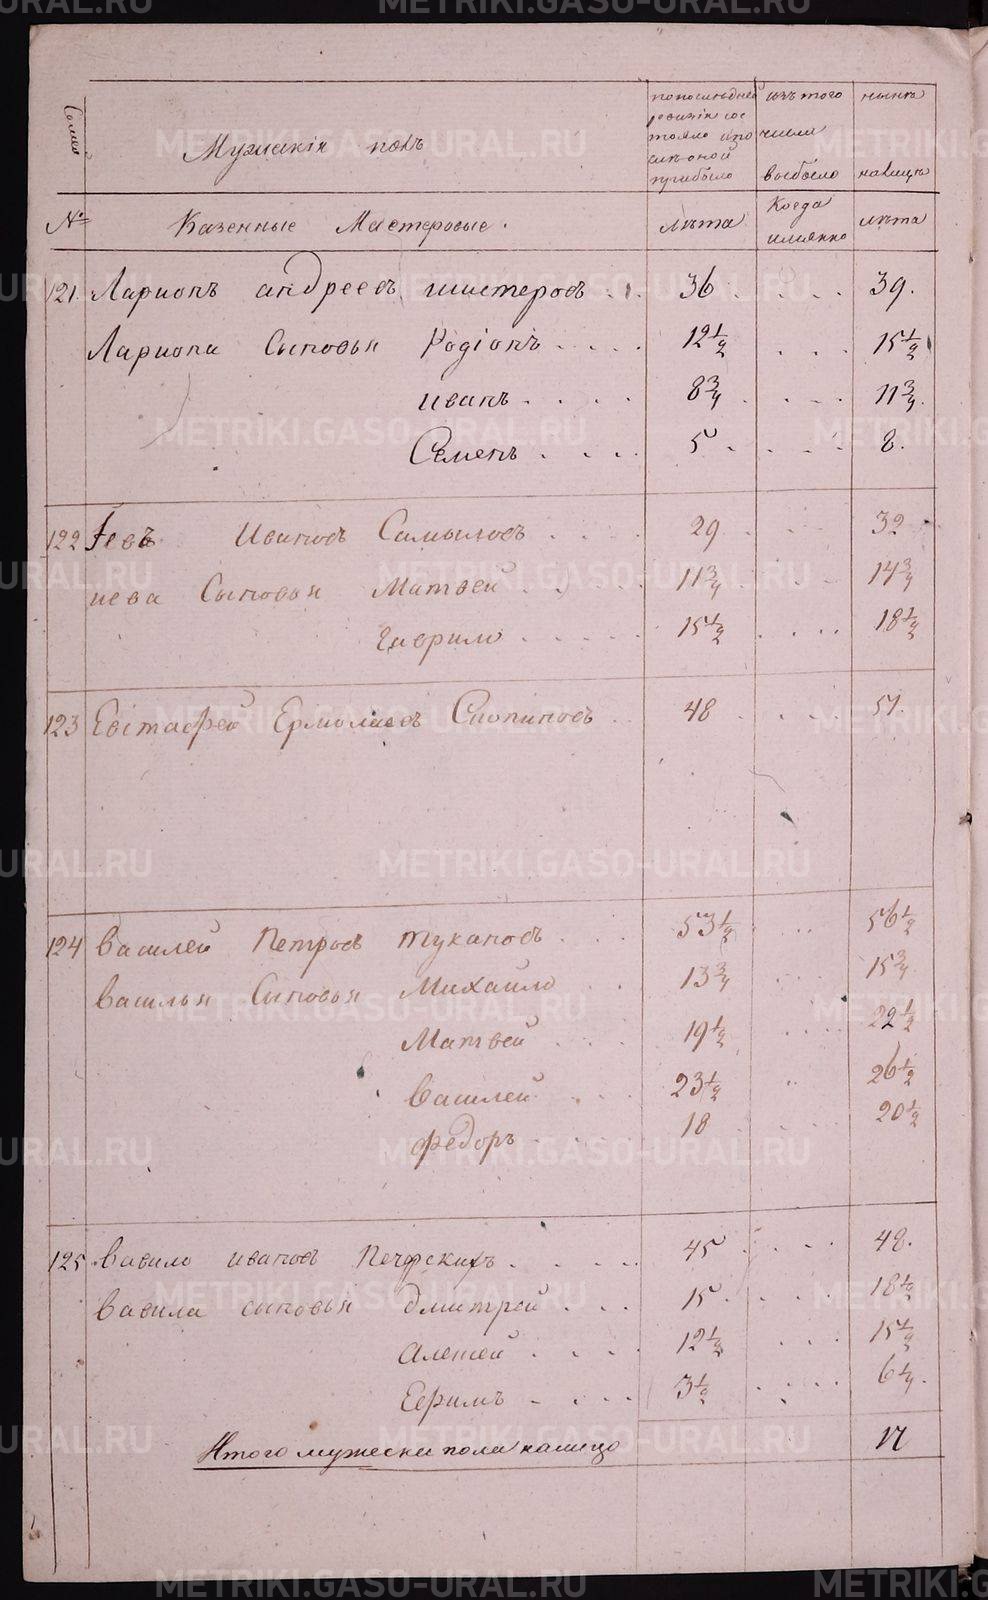 Семей
Мужескія полъ
по последней ревизіи состояло и после оной прибыло
изъ того числа выбыло
ныне на лицо
№
Казенные Мастеровые.
лѣта
Когда имянно
лѣта
121. Ларионъ андреевъ шистеровъ . . . 36 . . . . . 39.
Лариона Сыновья Родіонъ . . . . 12 1/2 . . . 15 1/2
иванъ . . . . 8 3/4 . . . . 11 3/4.
Семенъ . . . . 5 . . . . 8.
122 Иевъ Ивановъ Самыловъ . . . . 29 . . . 32
иева Сыновья Матвей . . . . 11 3/4 . . . 14 3/4
Гаврило . . . . . 15 1/2 . . . . 18 1/2
123 Евстафей Ермолаевъ Слопиновъ . . 48 . . . . 51.
124 Василей Петровъ тукановъ . . . 53 1/2 . . 56 1/2
Василья Сыновья Михаило . . 13 3/4 . . 15 3/4
Матвей . . . 19 1/2 . . . . 22 1/2
Василей . . 23 1/2 . . 26 1/2
Федоръ . . . . 18 . . . . 20 1/2
125 Вавило ивановъ Печерскихъ . . . . . 45 . . . . 48.
Вавила сыновья Дмитрей . . . 15 . . . . 18 1/2
Алексей . . . . 12 1/2 . . . 15 1/2
Ефимъ . . . . 3 1/2 . . . . 6 1/4.
Итого мужеска пола налицо 17
METRIKI.GASO-URAL.RU